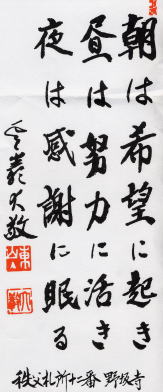 朝は希望に起き
昼は努力に活き
夜は感謝に眠る
秩父札所十二番 野坂寺